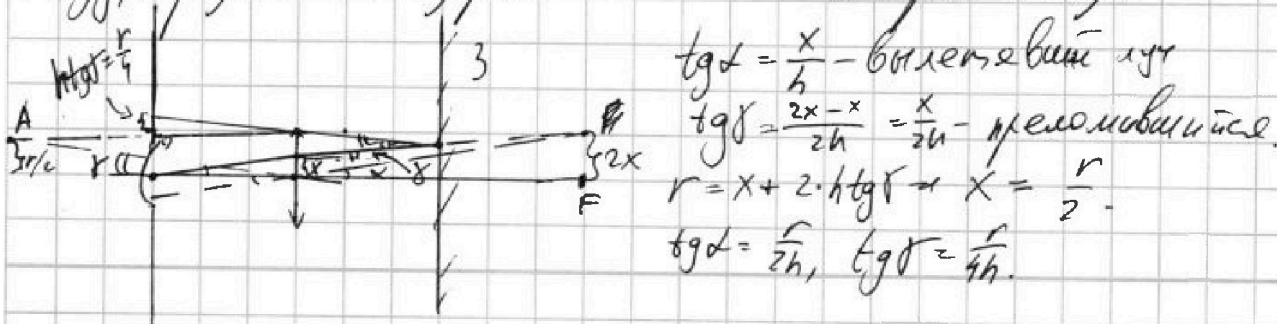 h tgγ = r/4
A
3
3r/2
r
x
γ
2x
F
tgα = x/h - вылетевший луч
tgγ = (2x - x)/2h = x/2h - преломившийся.
r = x + 2·h tgγ → x = r/2.
tgα = r/2h, tgγ = r/4h.